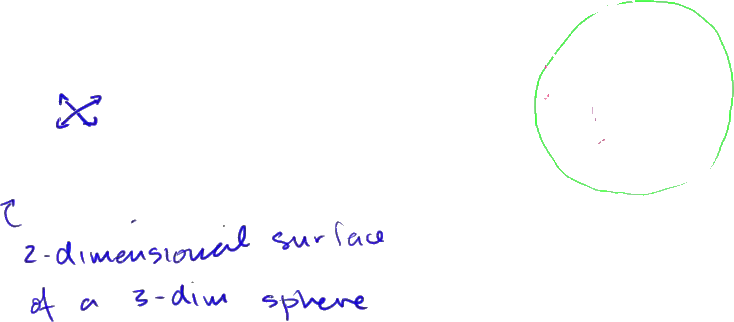 2-dimensional surface
of a 3-dim sphere